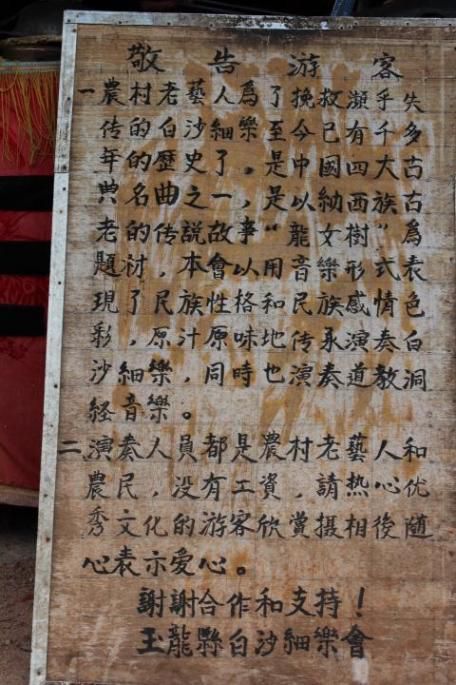 敬告游客
一農村老藝人為了挽救瀕乎失
传的白沙細樂至今已有千多
年的歷史了,是中國四大古
典名曲之一,是以納西族古
老的传說故事“龍女樹”為
題材,本會以用音樂形式表
現了民族性格和民族感情色
彩,原汁原味地传承演奏白
沙細樂,同時也演奏道教洞
経音樂。
二演奏人員都是農村老藝人和
農民,没有工資,請热心优
秀文化的游客欣赏摄相後随
心表示爱心。
謝謝合作和支持!
玉龍縣白沙細樂會